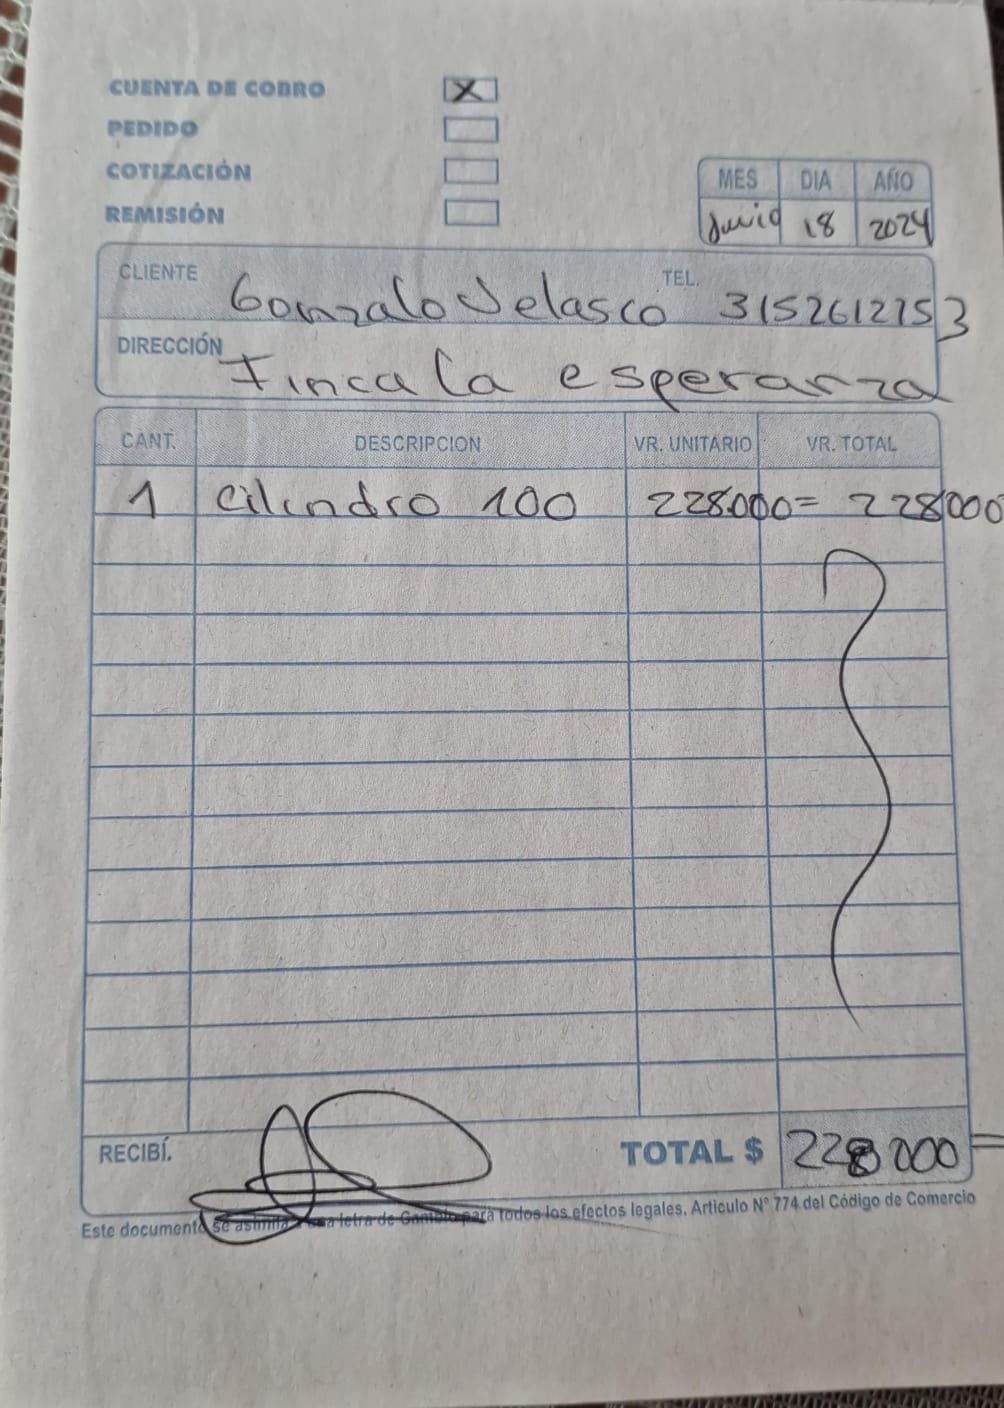 CUENTA DE COBRO X
PEDIDO
COTIZACIÓN
REMISIÓN
MES DIA AÑO
Junio 18 2024
CLIENTE Gonzalo Velasco TEL. 3152612153
DIRECCIÓN Finca la esperanza
CANT. DESCRIPCION VR. UNITARIO VR. TOTAL
1 cilindro 100 228.000= 228000
RECIBÍ. TOTAL $ 228000
Este documento se asimila a una letra de Cambio para todos los efectos legales. Articulo Nº 774 del Código de Comercio